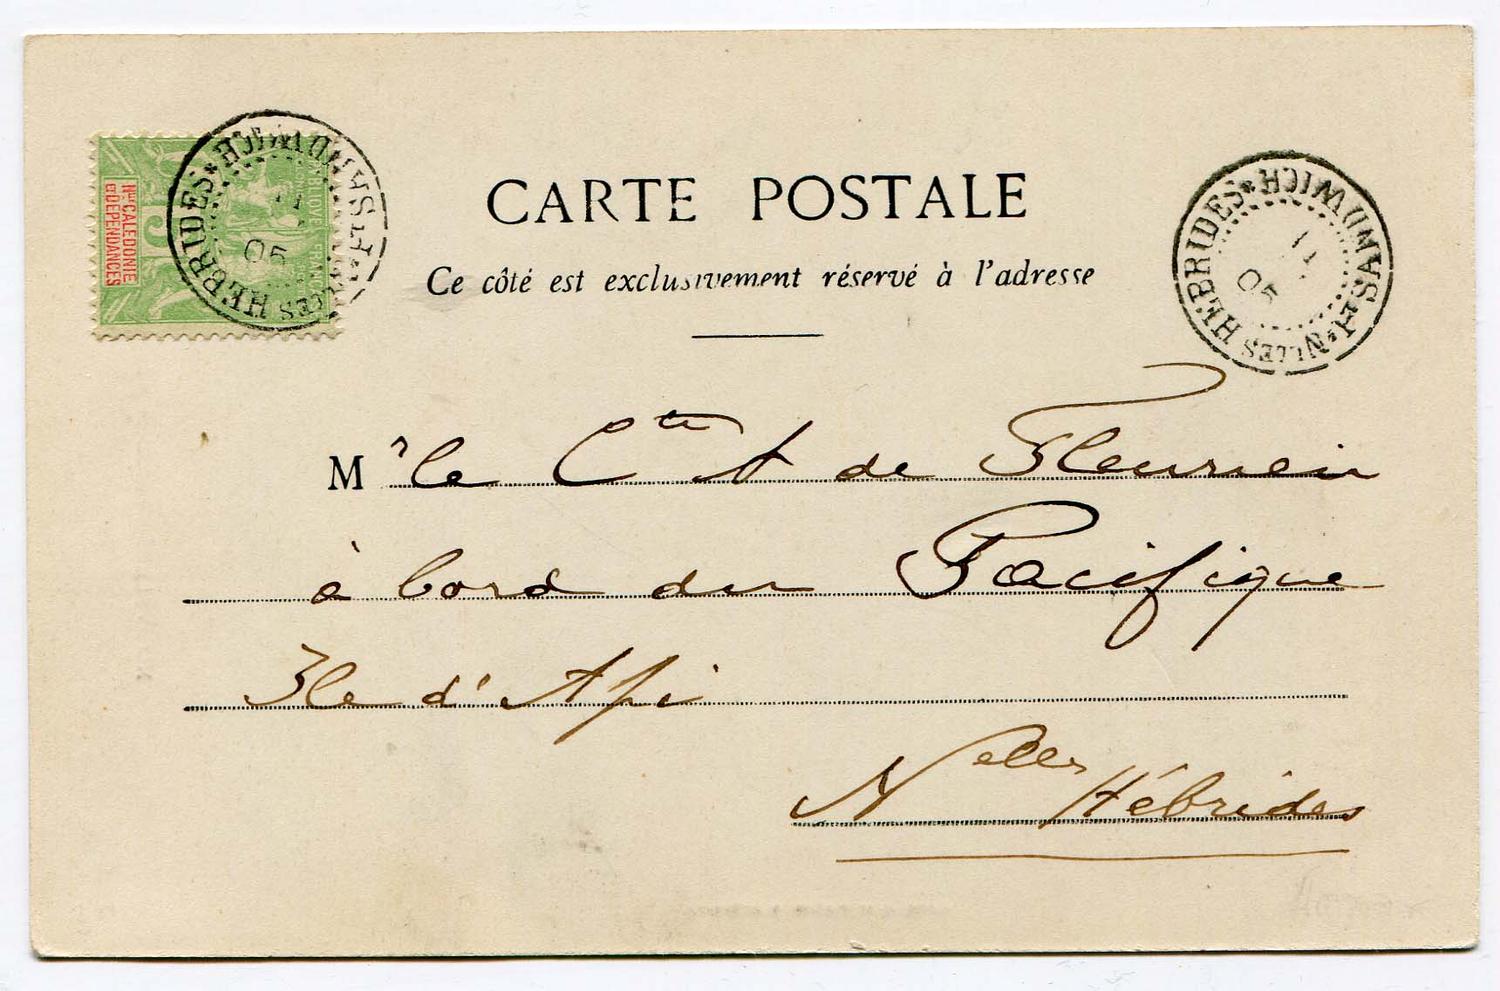 CARTE POSTALE
Ce côté est exclusivement réservé à l'adresse
Mr le Cte A de Fleurieu
à bord du Pacifique
Ile d'Api
Nelles Hébrides
Nlle CALEDONIE
ET DEPENDANCES
5
PT SANDWICH * NLLES HEBRIDES *
11
05
PT SANDWICH * NLLES HEBRIDES *
11
05